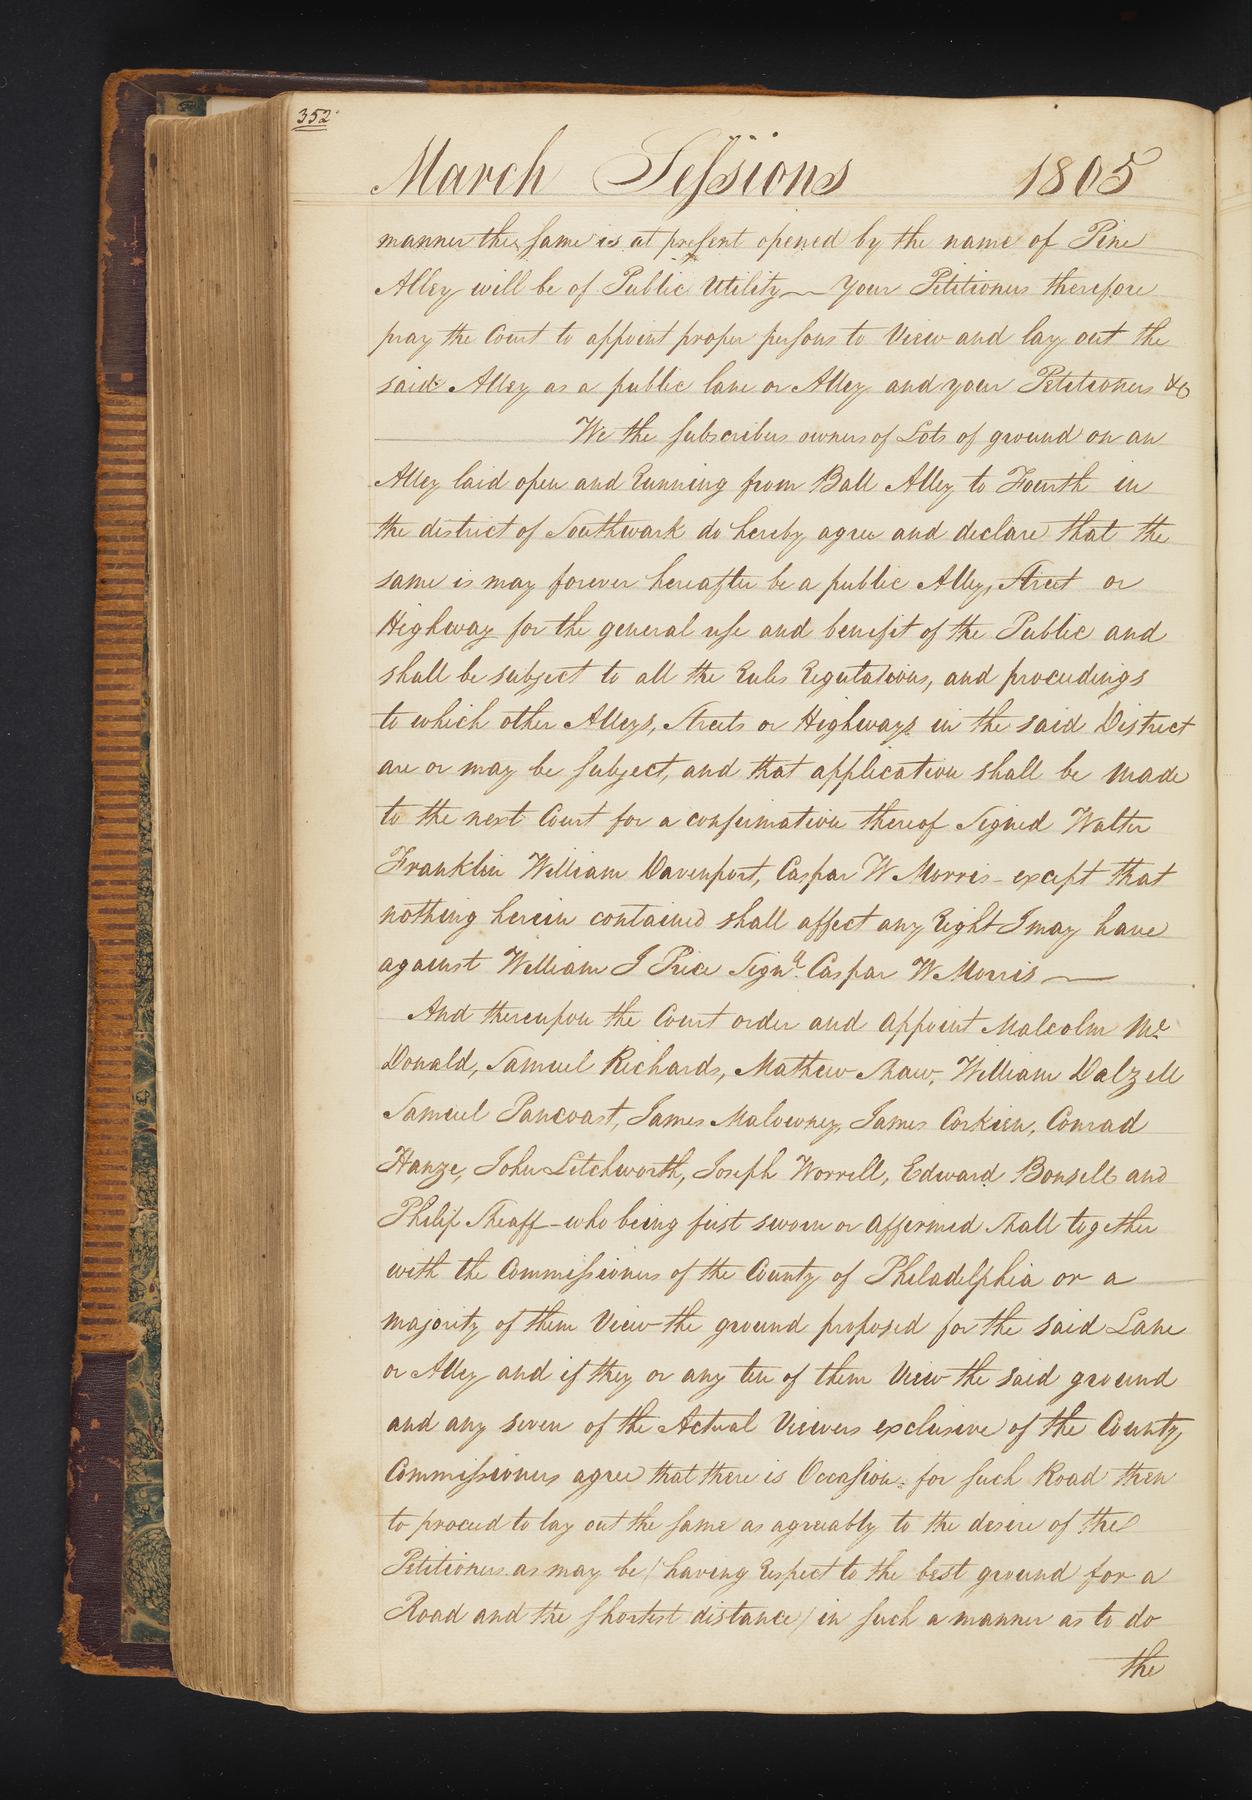 352
March Sessions 1805
manner the same is at present opened by the name of Pine
Alley will be of Public Utility — Your Petitioners therefore
pray the Court to appoint proper persons to View and lay out the
said Alley as a public lane or Alley and your Petitioners &c
We the subscribers owners of Lots of ground on an
Alley laid open and Running from Ball Alley to Fourth in
the district of Southwark do hereby agree and declare that the
same is may forever hereafter be a public Alley, Street or
Highway for the general use and benefit of the Public and
shall be subject to all the Rules Regulations, and proceedings
to which other Alleys, Streets or Highways in the said District
are or may be subject, and that application shall be made
to the next Court for a confirmation thereof Signed Walter
Franklin William Davenport, Caspar W Morris - except that
nothing herein contained shall affect any Right I may have
against William I Price Sign.d Caspar W Morris —
And thereupon the Court order and appoint Malcolm Mc
Donald, Samuel Richards, Mathew Shaw, William Dalzell
Samuel Pancoast, James Maloweney, James Corkien, Conrad
Hanze, John Letchworth, Joseph Worrell, Edward Bonsell and
Philip Sheaff - who being first sworn or affirmed shall together
with the Commissioners of the County of Philadelphia or a
majority of them View the ground proposed for the said Lane
or Alley and if they or any ten of them View the said ground
and any seven of the Actual Viewers exclusive of the County
Commissioners agree that there is Occasion for such Road then
to proceed to lay out the same as agreeably to the desire of the
Petitioners as may be (having Respect to the best ground for a
Road and the shortest distance) in such a manner as to do
the